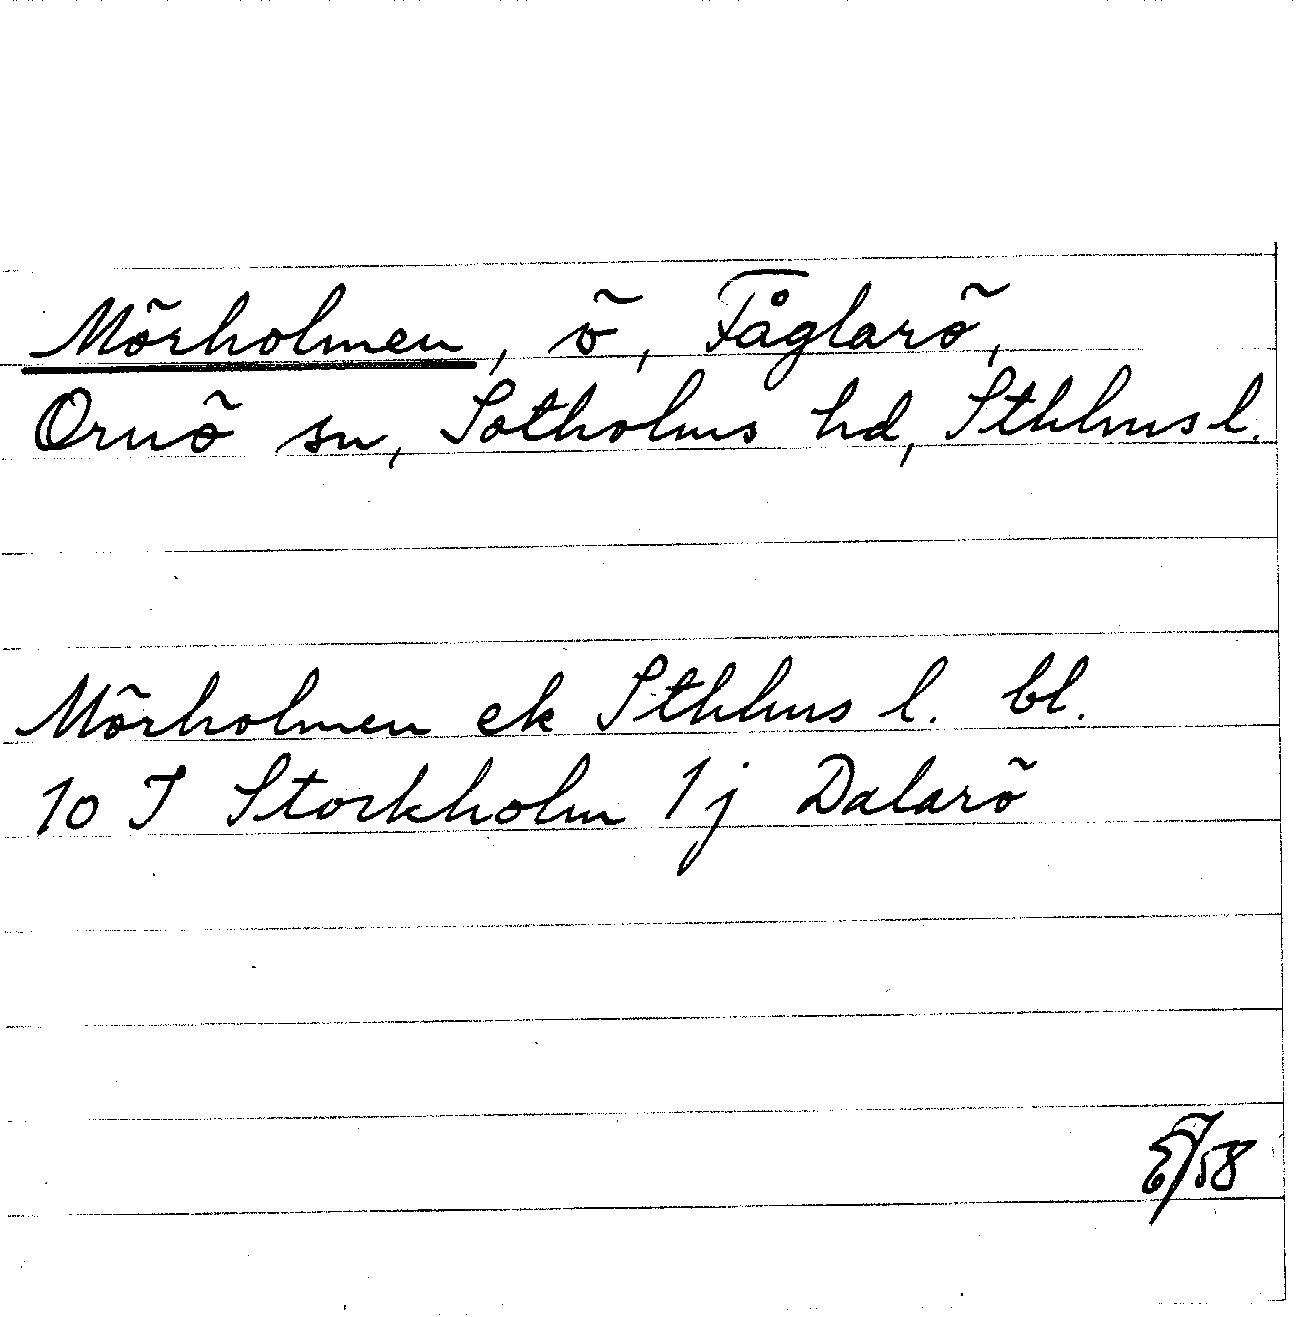 Mörholmen, ö, Fåglarö,
Ornö sn, Sotholms hd, Sthlms l.
Mörholmen ek Sthlms l. bl.
10 I Stockholm 1j Dalarö
/58